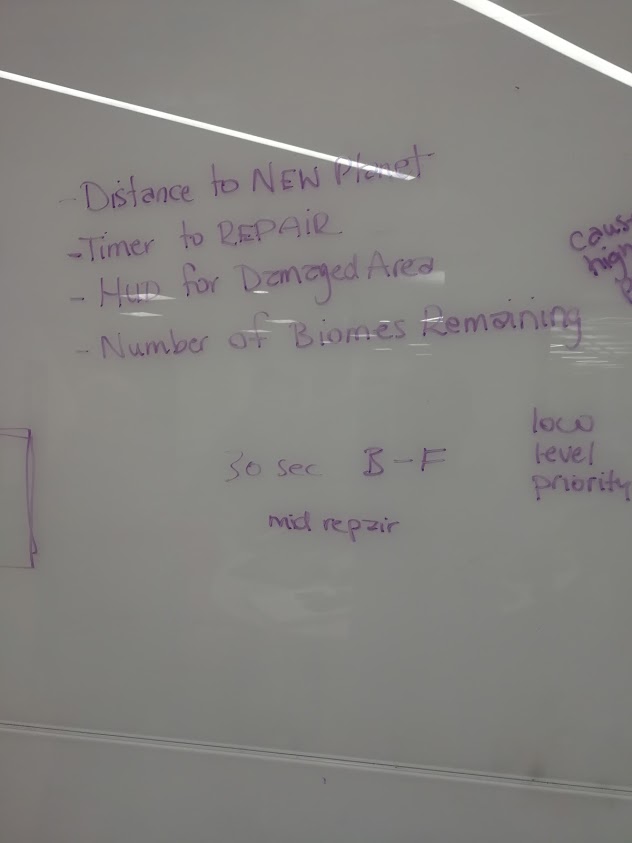 - Distance to NEW Planet
- Timer to REPAIR
- HUD for Damaged Area
- Number of Biomes Remaining
caus
high
30 sec B-F
mid repair
low
level
priority